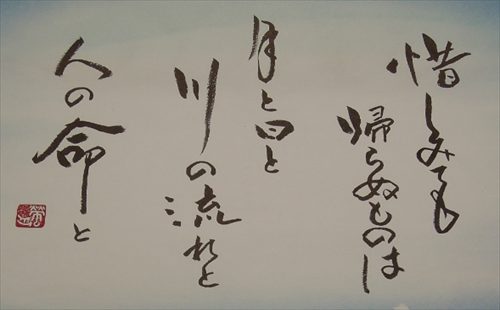 惜しみても
帰らぬものは
月と日と
川の流れと
人の命と